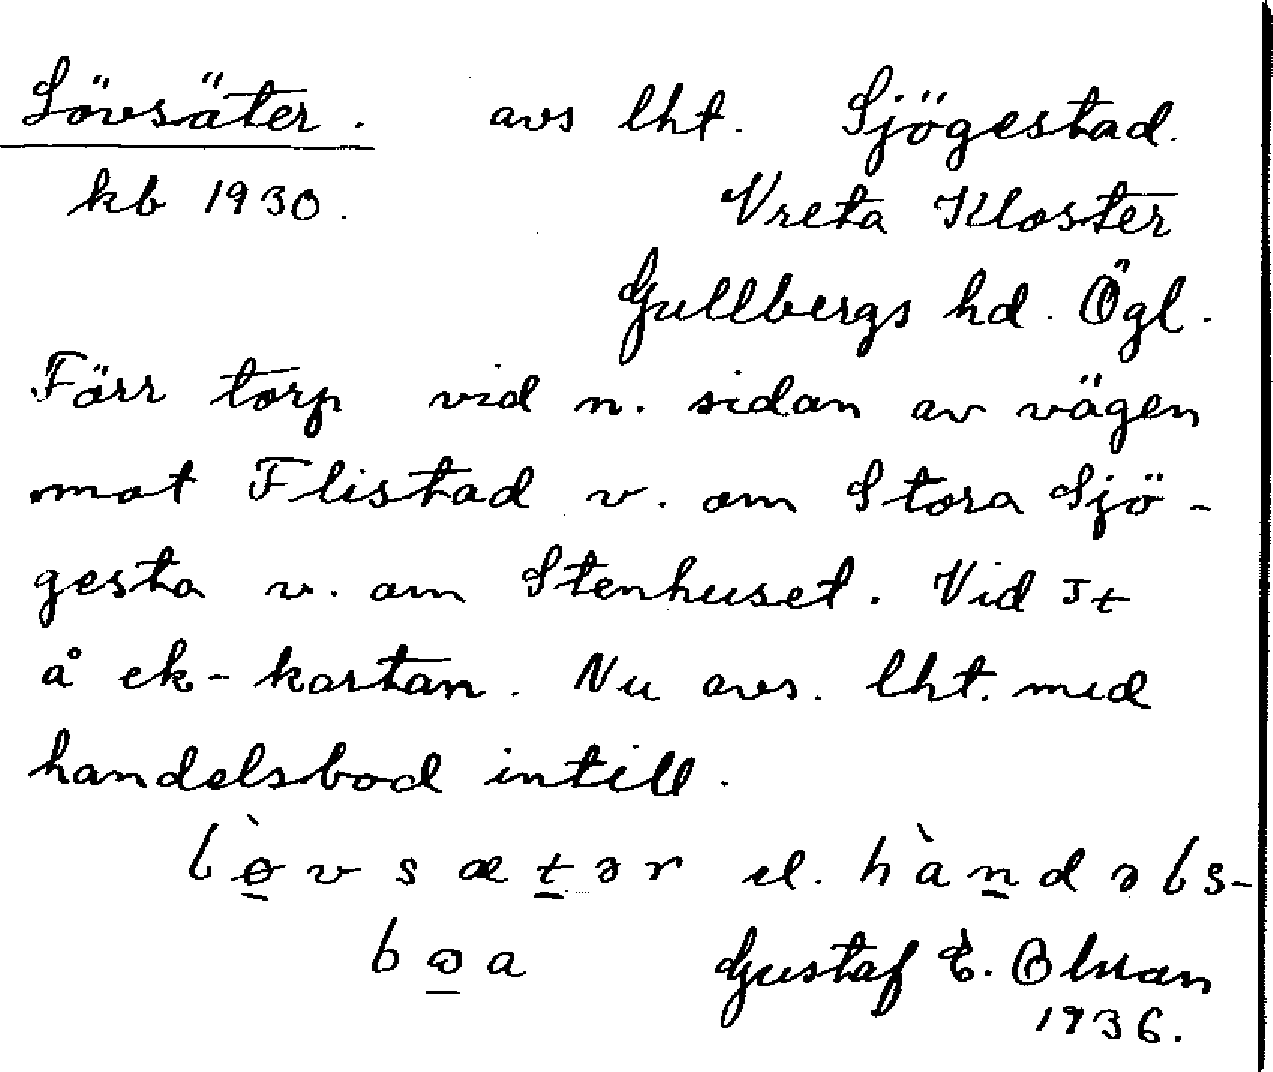 Lövsäter. avs lht. Sjögestad.
kb 1930. Vreta Kloster
Gullbergs hd. Ögl.
Förr torp vid n. sidan av vägen
mot Flistad v. om Stora Sjö-
gesta v. om Stenhuset. Vid
å ek-kartan. Nu avs. lht. med
handelsbod intill.
el.
Gustaf E. Olsson
1936.